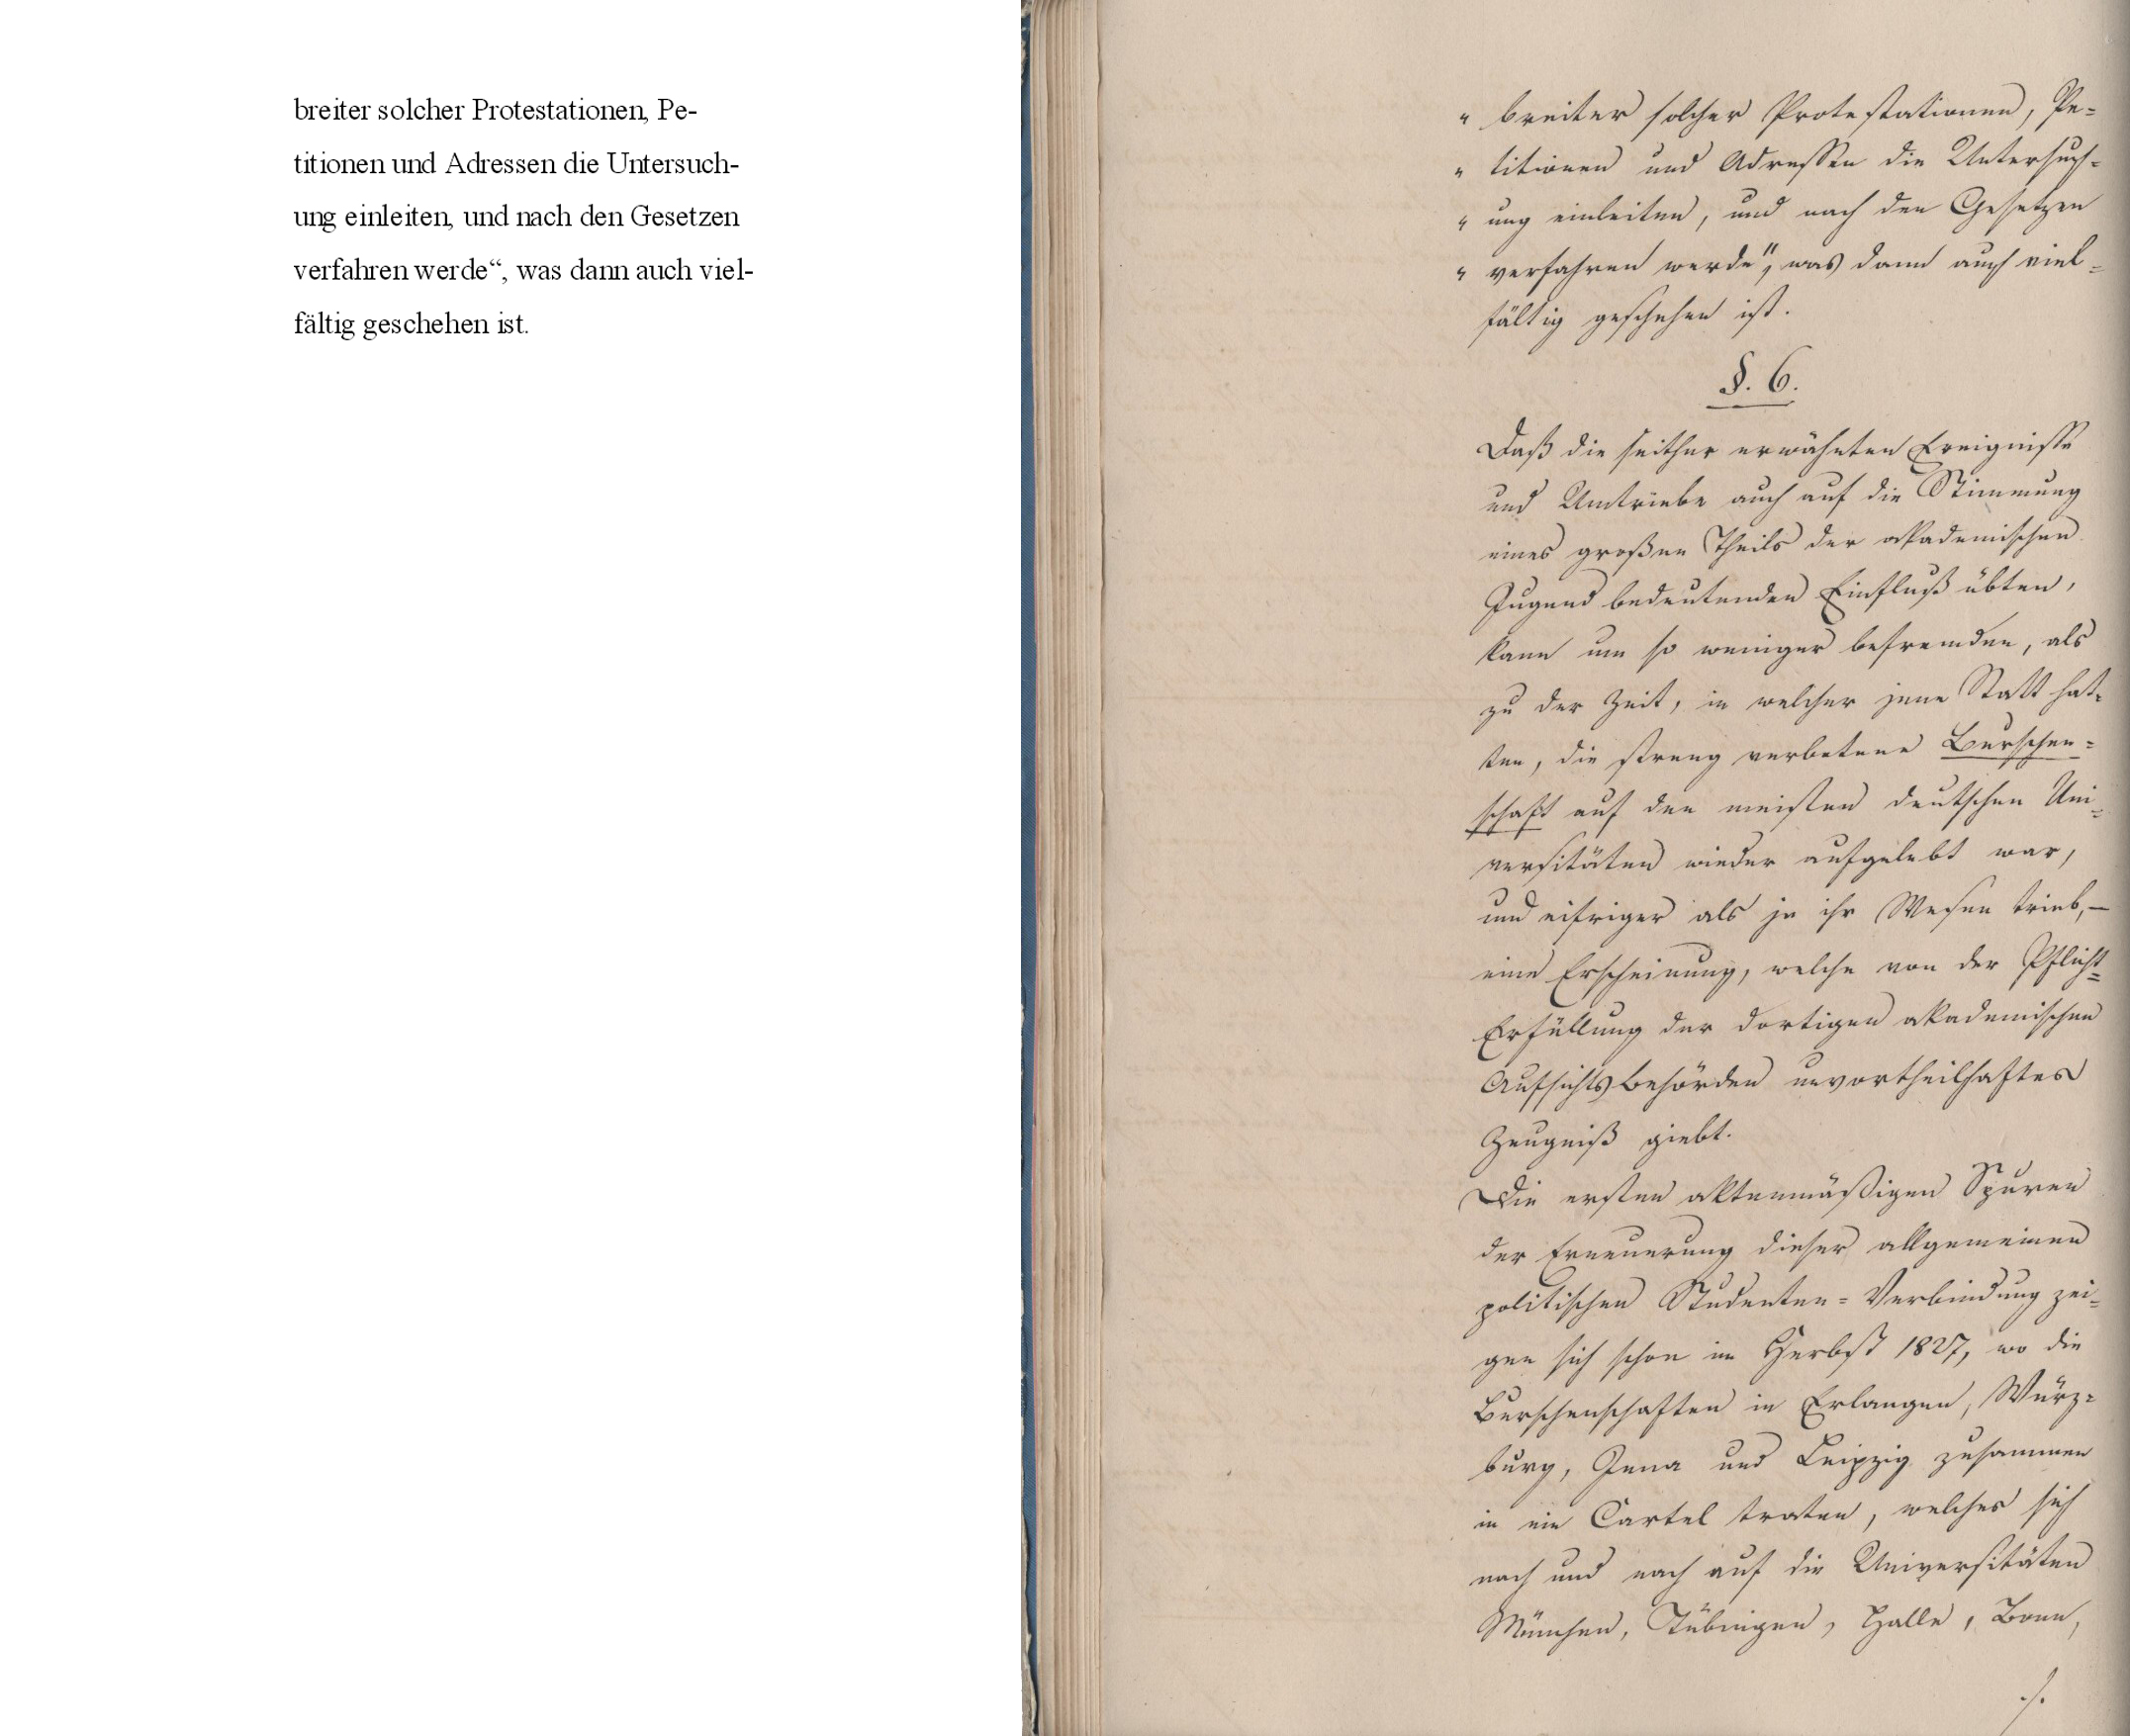 breiter solcher Protestationen, Pe-
titionen und Adressen die Untersuch-
ung einleiten, und nach den Gesetzen
verfahren werde“, was dann auch viel-
fältig geschehen ist.
" breiter solcher Protestationen, Pe-
" titionen und Adressen die Untersuch-
" ung einleiten, und nach den Gesetzen
" verfahren werde", was dann auch viel-
fältig geschehen ist.
§. 6.
Daß die seither erwähnten Ereignisse
und Umtriebe auch auf die Stimmung
eines großen Theils der akademischen
Jugend bedeutenden Einfluß übten,
kann um so weniger befremden, als
zu der Zeit, in welcher jene Statt hat-
ten, die streng verbotene Burschen-
schaft auf den meisten deutschen Uni-
versitäten wieder aufgelebt war,
und eifriger als je ihr Wesen trieb, —
eine Erscheinung, welche von der Pflicht-
Erfüllung der dortigen akademischen
Aufsichtsbehörden unvortheilhaftes
Zeugniß giebt.
Die ersten aktenmäßigen Spuren
der Erneuerung dieser allgemeinen
politischen Studenten-Verbindung zei-
gen sich schon im Herbst 1827, wo die
Burschenschaften in Erlangen, Würz-
burg, Jena und Leipzig zusammen
in ein Cartel traten, welches sich
nach und nach auf die Universitäten
München, Tübingen, Halle, Bonn,
./.